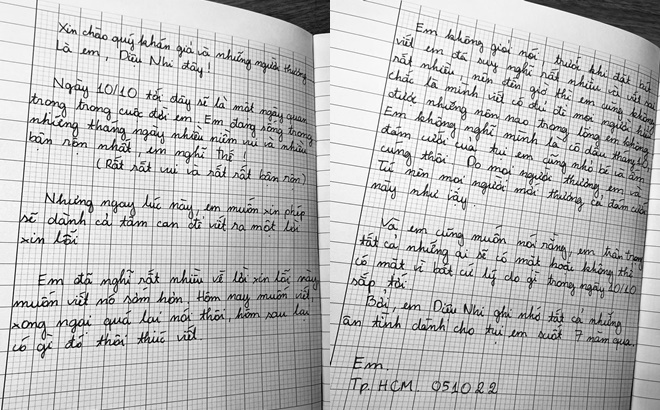 Xin chào quý khán giả và những người thương
Là em, Diệu Nhi đây!
Ngày 10/10 tới đây sẽ là một ngày quan
trọng trong cuộc đời em. Em đang sống trong
những tháng ngày nhiều niềm vui và nhiều
bận rộn nhất, em nghĩ thế!
(Rất rất vui và rất rất bận rộn)
Nhưng ngay lúc này, em muốn xin phép
sẽ dành cả tâm can để viết ra một lời
xin lỗi
Em đã nghĩ rất nhiều về lời xin lỗi này
muốn viết nó sớm hơn, hôm nay muốn viết,
xong ngại quá lại nói thôi, hôm sau lại
có gì đó thôi thúc viết.
Em không giỏi nói, trước khi đặt bút
viết em đã suy nghĩ rất nhiều và viết sau
rất nhiều, nên đến giờ thì em cũng không
chắc là mình viết có đủ để mọi người hiểu
được những nỗi trong lòng em không.
Em không nghĩ mình là cô dâu tháng 10,
đám cưới của tụi em cũng nhỏ bé và ấm
cúng thôi. Do mọi người thương em và
Tú nên mọi người mới thương cả đám cưới
này như vậy.
Và em cũng muốn nói rằng, em trân trọng
tất cả những ai sẽ có mặt hoặc không thể
có mặt vì bất cứ lý do gì trong ngày 10/10
sắp tới.
Bởi, em Diệu Nhi ghi nhớ tất cả những
ân tình dành cho tụi em suốt 7 năm qua.
Em.
Tp. HCM. 051022